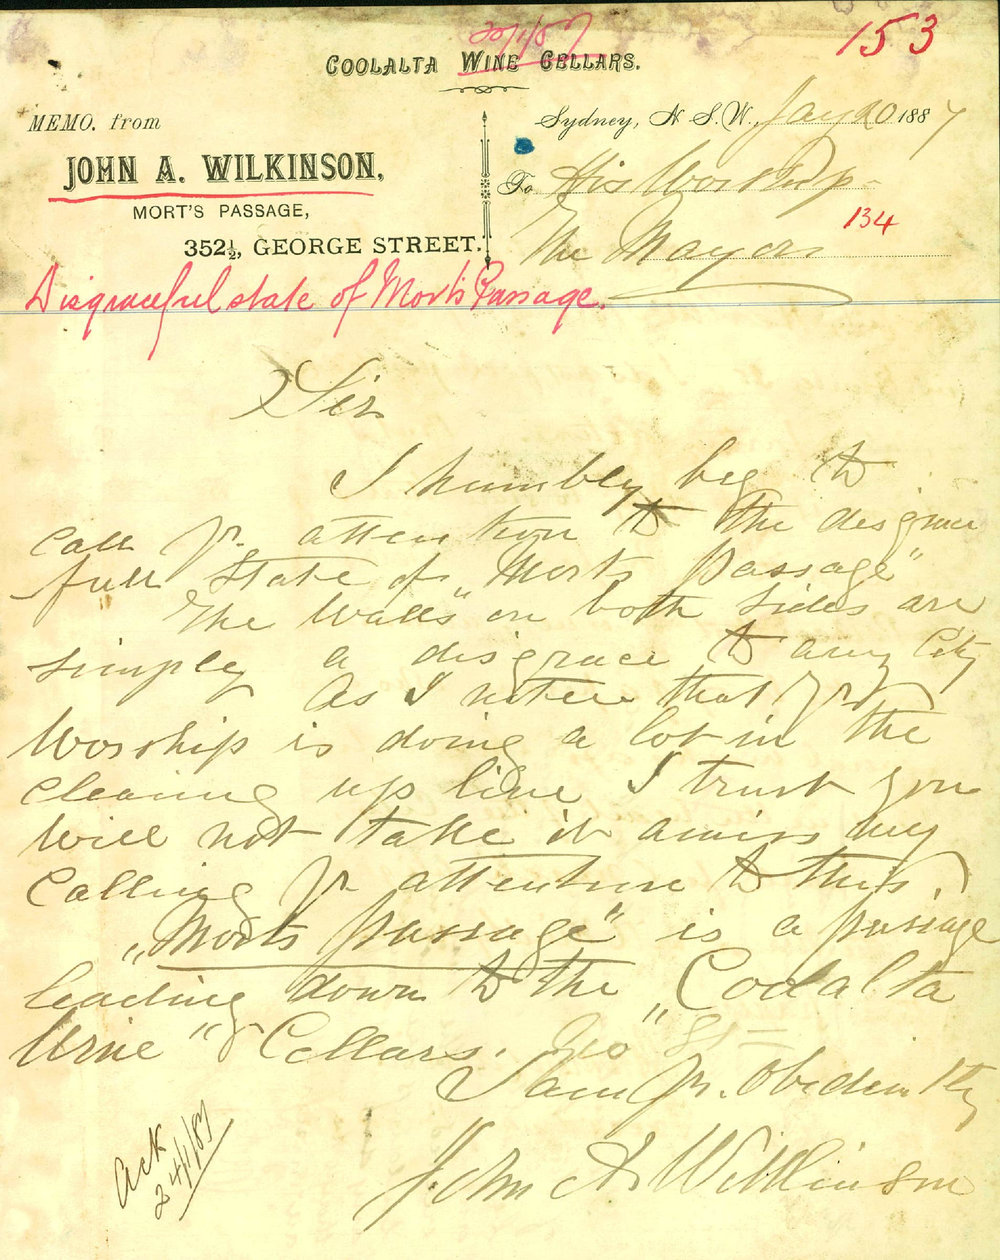 20/1/87
153
COOLALTA WINE CELLARS.
MEMO. from
Sydney, N. S. W., Jany 20 1887
JOHN A. WILKINSON,
To His Worship
MORT'S PASSAGE,
134
The Mayor
352½, GEORGE STREET.
Disgraceful state of Mort's Passage.
Sir
I humbly beg to
call yr. attention to the disgrace
full state of "Morts passage"
The walls on both sides are
simply a disgrace to any City
As I notice that yr
Worship is doing a lot in the
cleaning up line I trust you
will not take it amiss my
calling yr attention to this.
"Morts passage" is a passage
leading down to the "Coolalta
Wine" Cellars. Geo St
I am yr. Obediently
John A Wilkinson
Ack
24/1/87